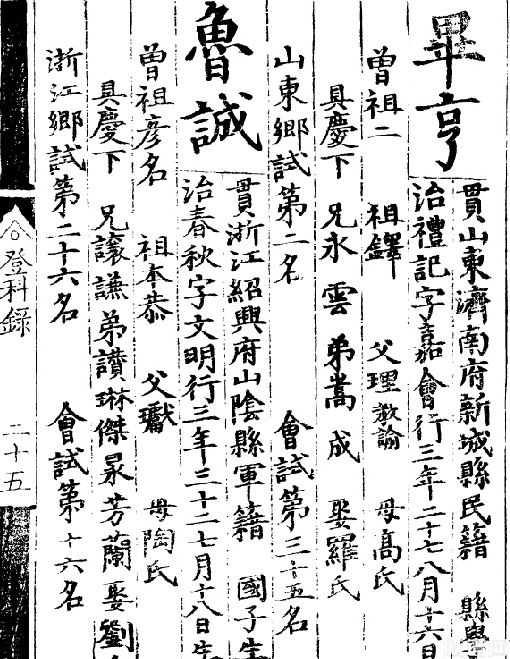 畢亨
貫山東濟南府新城縣民籍 縣學
治禮記字嘉會行三年二十七八月十六日
曾祖二 祖鐸 父理教諭 母高氏
具慶下 兄永 雲 弟嵩 成 娶羅氏
山東鄉試第二名 會試第三十五名
魯誠
貫浙江紹興府山陰縣軍籍 國子生
治春秋字文明行三年三十二七月十八日生
曾祖彥名 祖本恭 父瓛 母陶氏
具慶下 兄讓謙弟讚琳傑芳蘭娶劉
浙江鄉試第二十六名 會試第十六名
登科錄 二十五